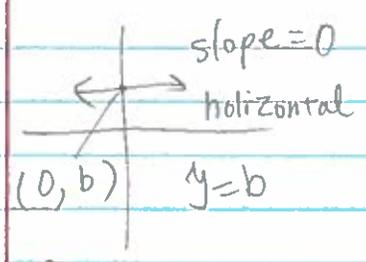 slope=0
holizontal
(0,b)
y=b